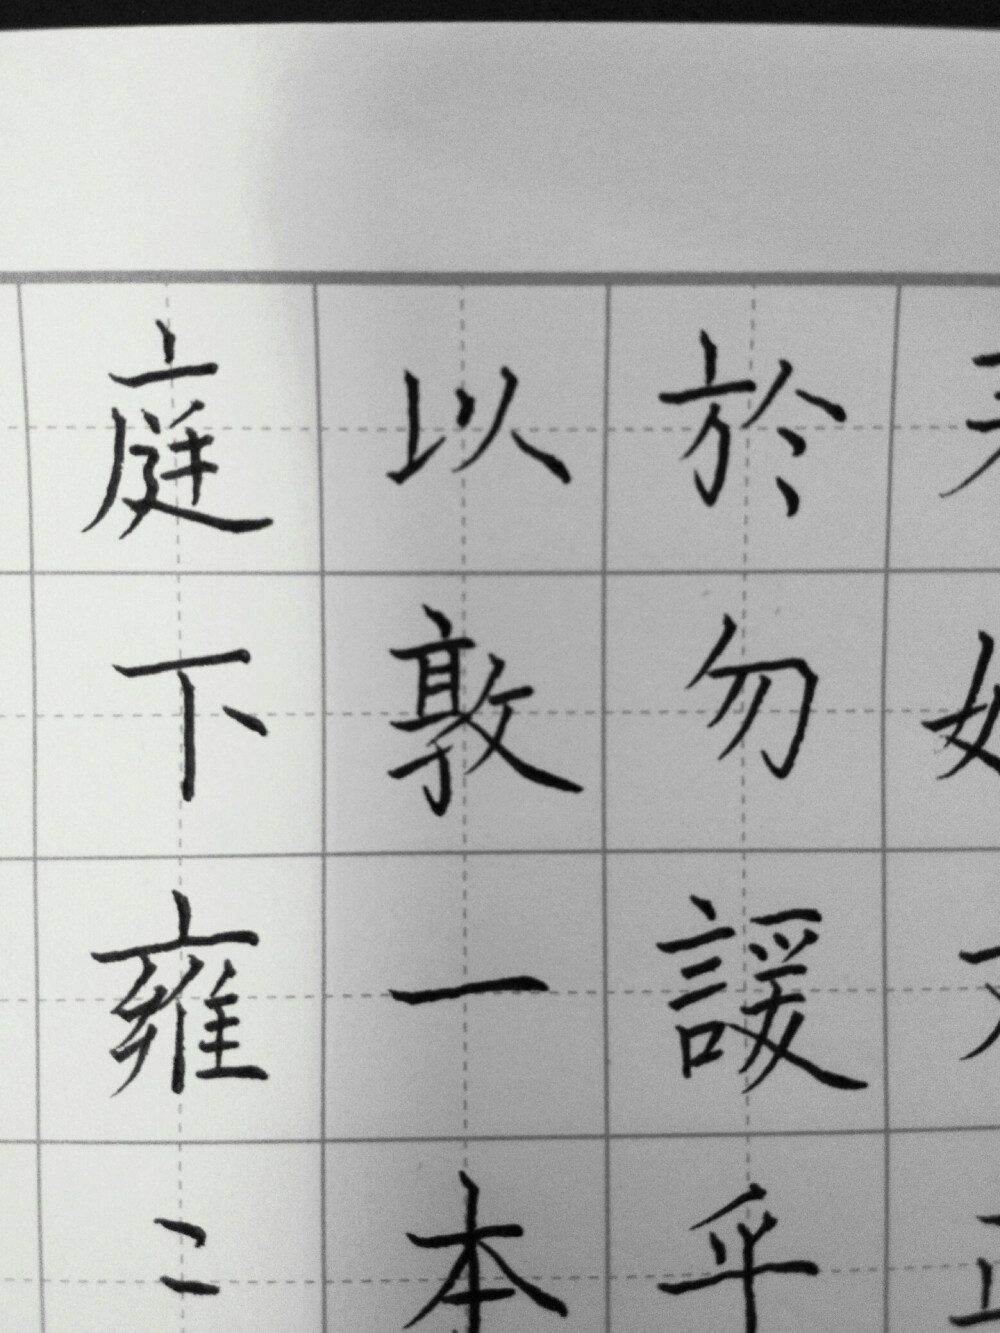 於勿諼乎
以敦一本
庭下雍〻